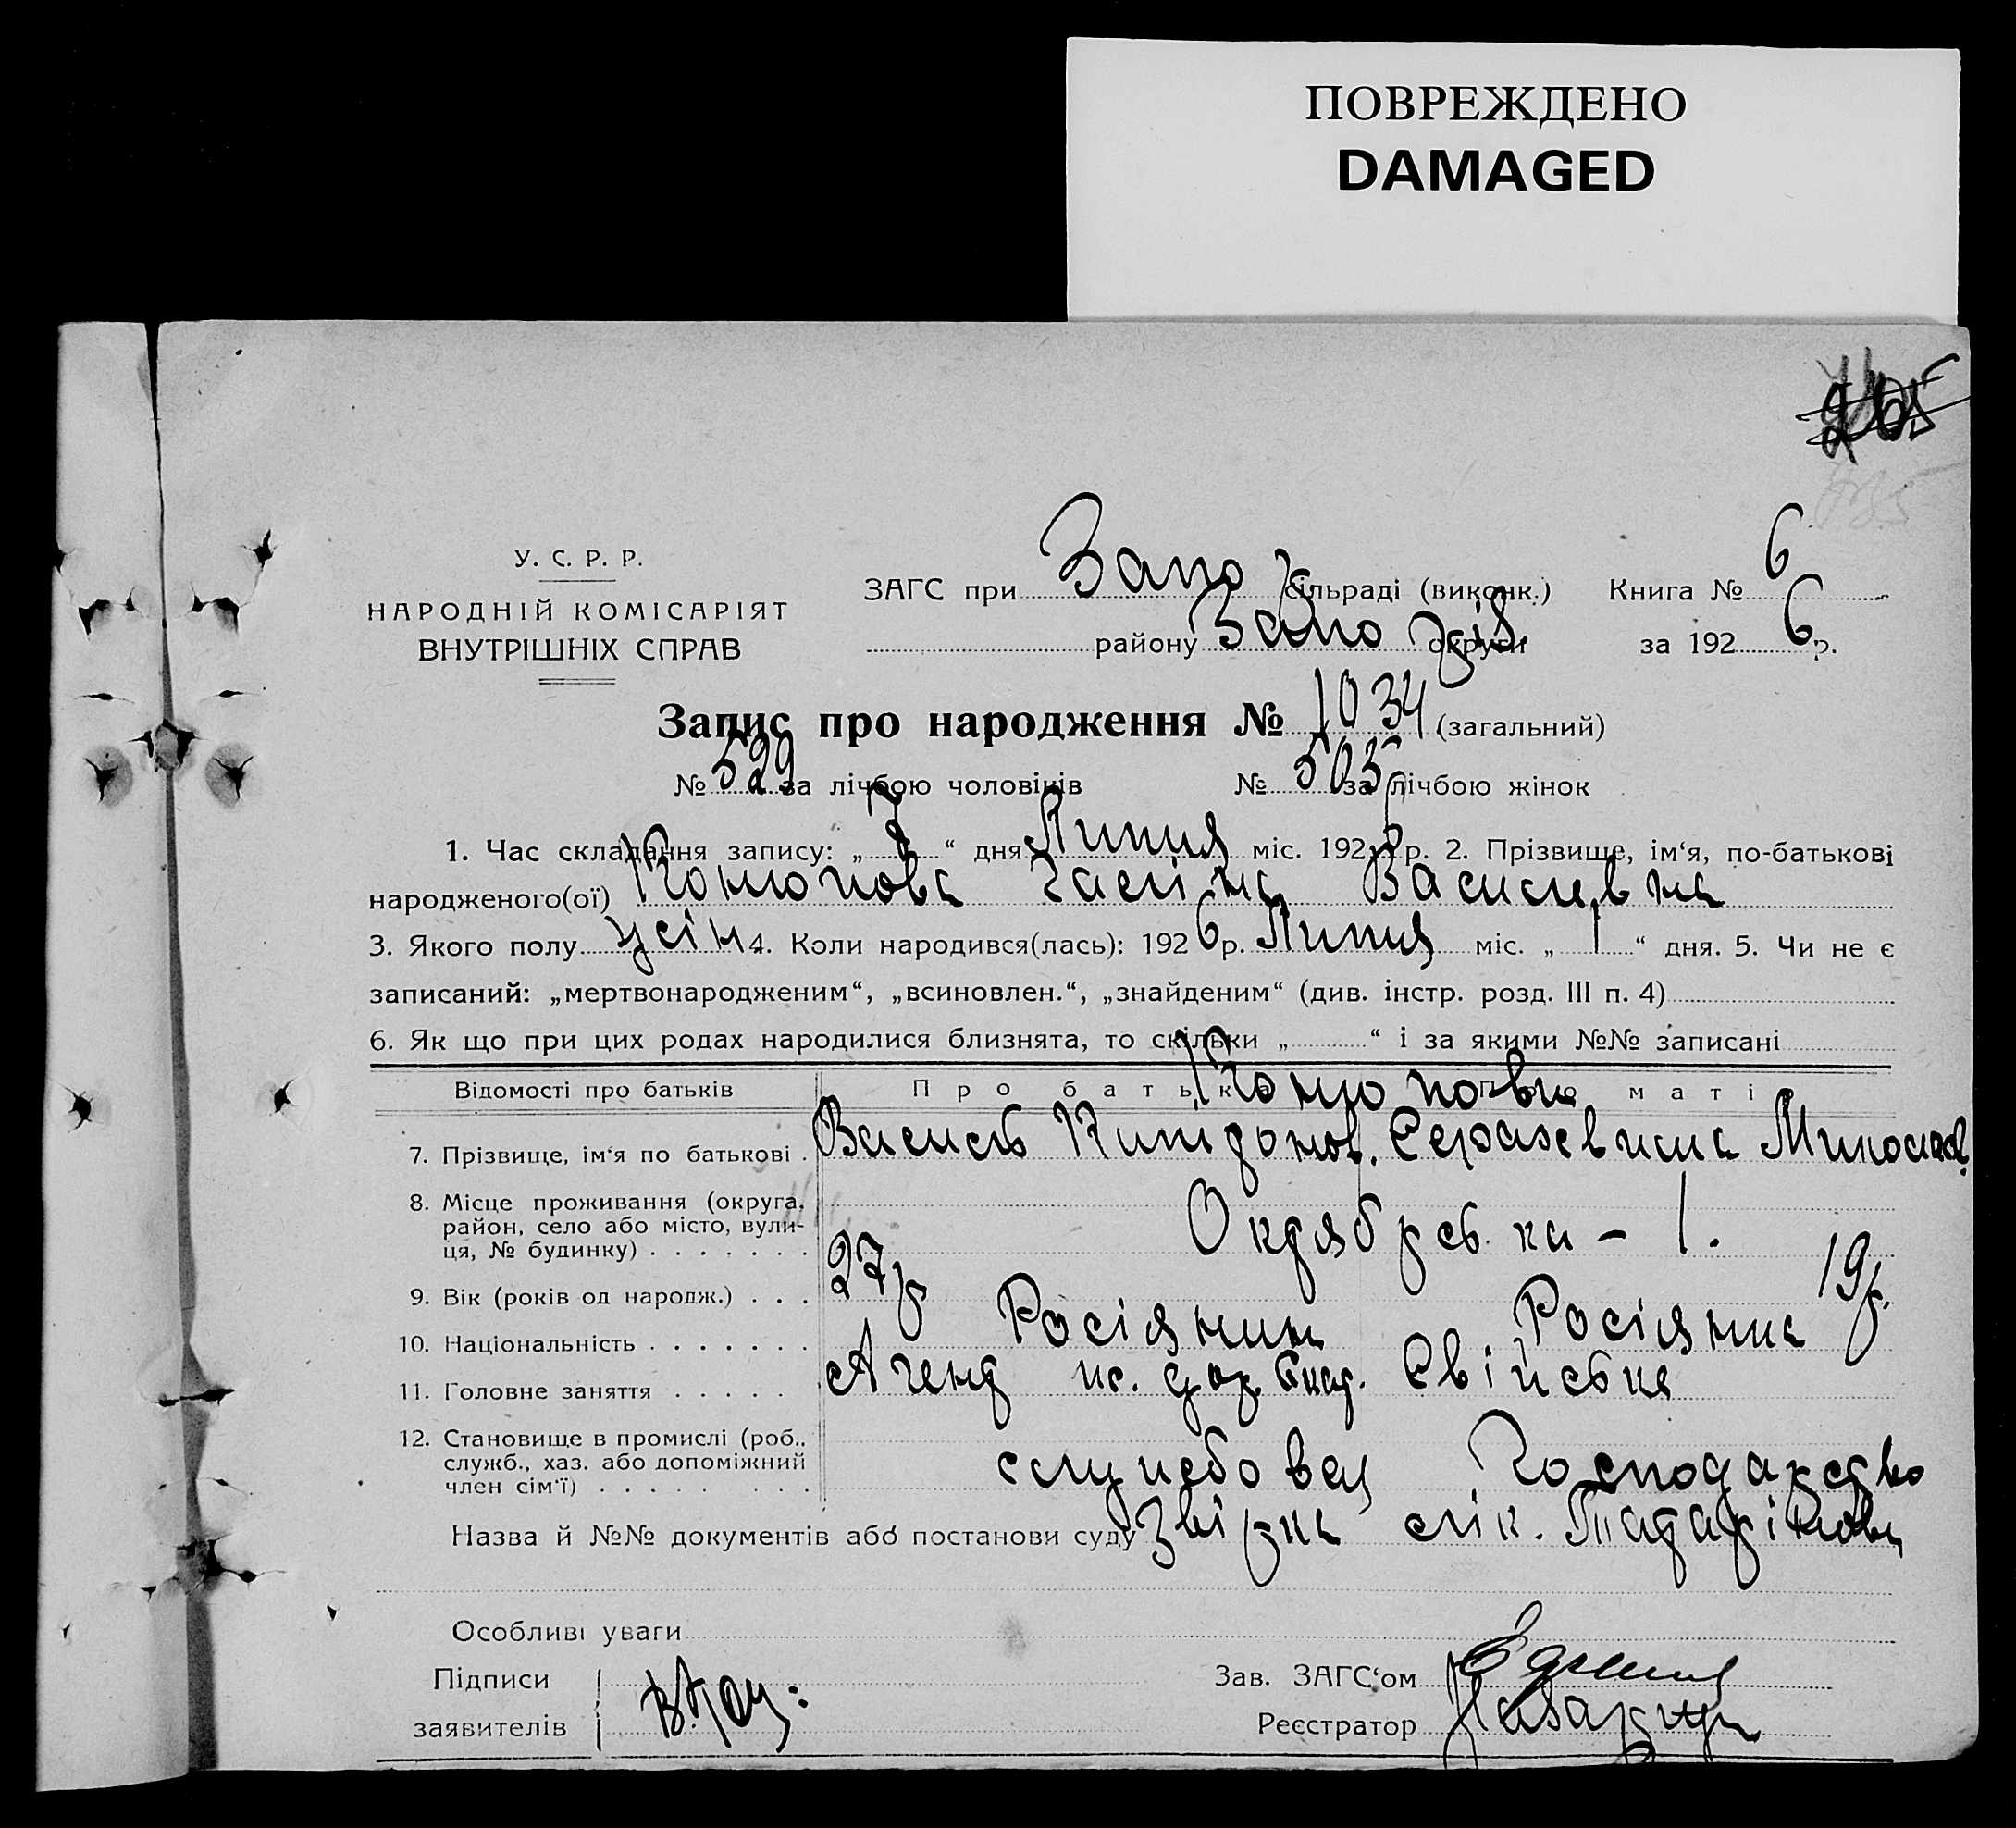 ПОВРЕЖДЕНО
DAMAGED
265
У. С. Р. Р.
НАРОДНІЙ КОМІСАРІЯТ
ВНУТРІШНІХ СПРАВ
ЗАГС при Запо сільраді (виконк.) Книга № 6
району Запо різ. округи за 1926 р.
Запис про народження № 1034 (загальний)
№ 529 за лічбою чоловіків № 505 за лічбою жінок
1. Час складання запису: „7“ дня Липня міс. 1926 р. 2. Прізвище, ім‘я, по-батькові
народженого(ої) Васильевна
3. Якого полу 4. Коли народився(лась): 1926 р. Липня міс. „1“ дня. 5. Чи не є
записаний: „мертвонародженим“, „всиновлен.“, „знайденим“ (див. інстр. розд. III п. 4)
6. Як що при цих родах народилися близнята, то скільки „ “ і за якими №№ записані
Відомості про батьків Про батька Про маті
7. Прізвище, ім‘я по батькові . Василь
8. Місце проживання (округа, район, село або місто, вули-
ця, № будинку) . . . . . . . Октябрсь ка – 1.
9. Вік (років од народж.) . . . 27 р 19 р.
10. Національність . . . . . . . Росіянин Росіянка
11. Головне заняття . . . . . . Агент Свійська
12. Становище в промислі (роб.,
служб., хаз. або допоміжний
член сім‘ї) . . . . . . . . . службовец Господарство
Назва й №№ документів або постанови суду Звірка лік.
Особливі уваги
Підписи
заявителів
Зав. ЗАГС‘ом
Реєстратор